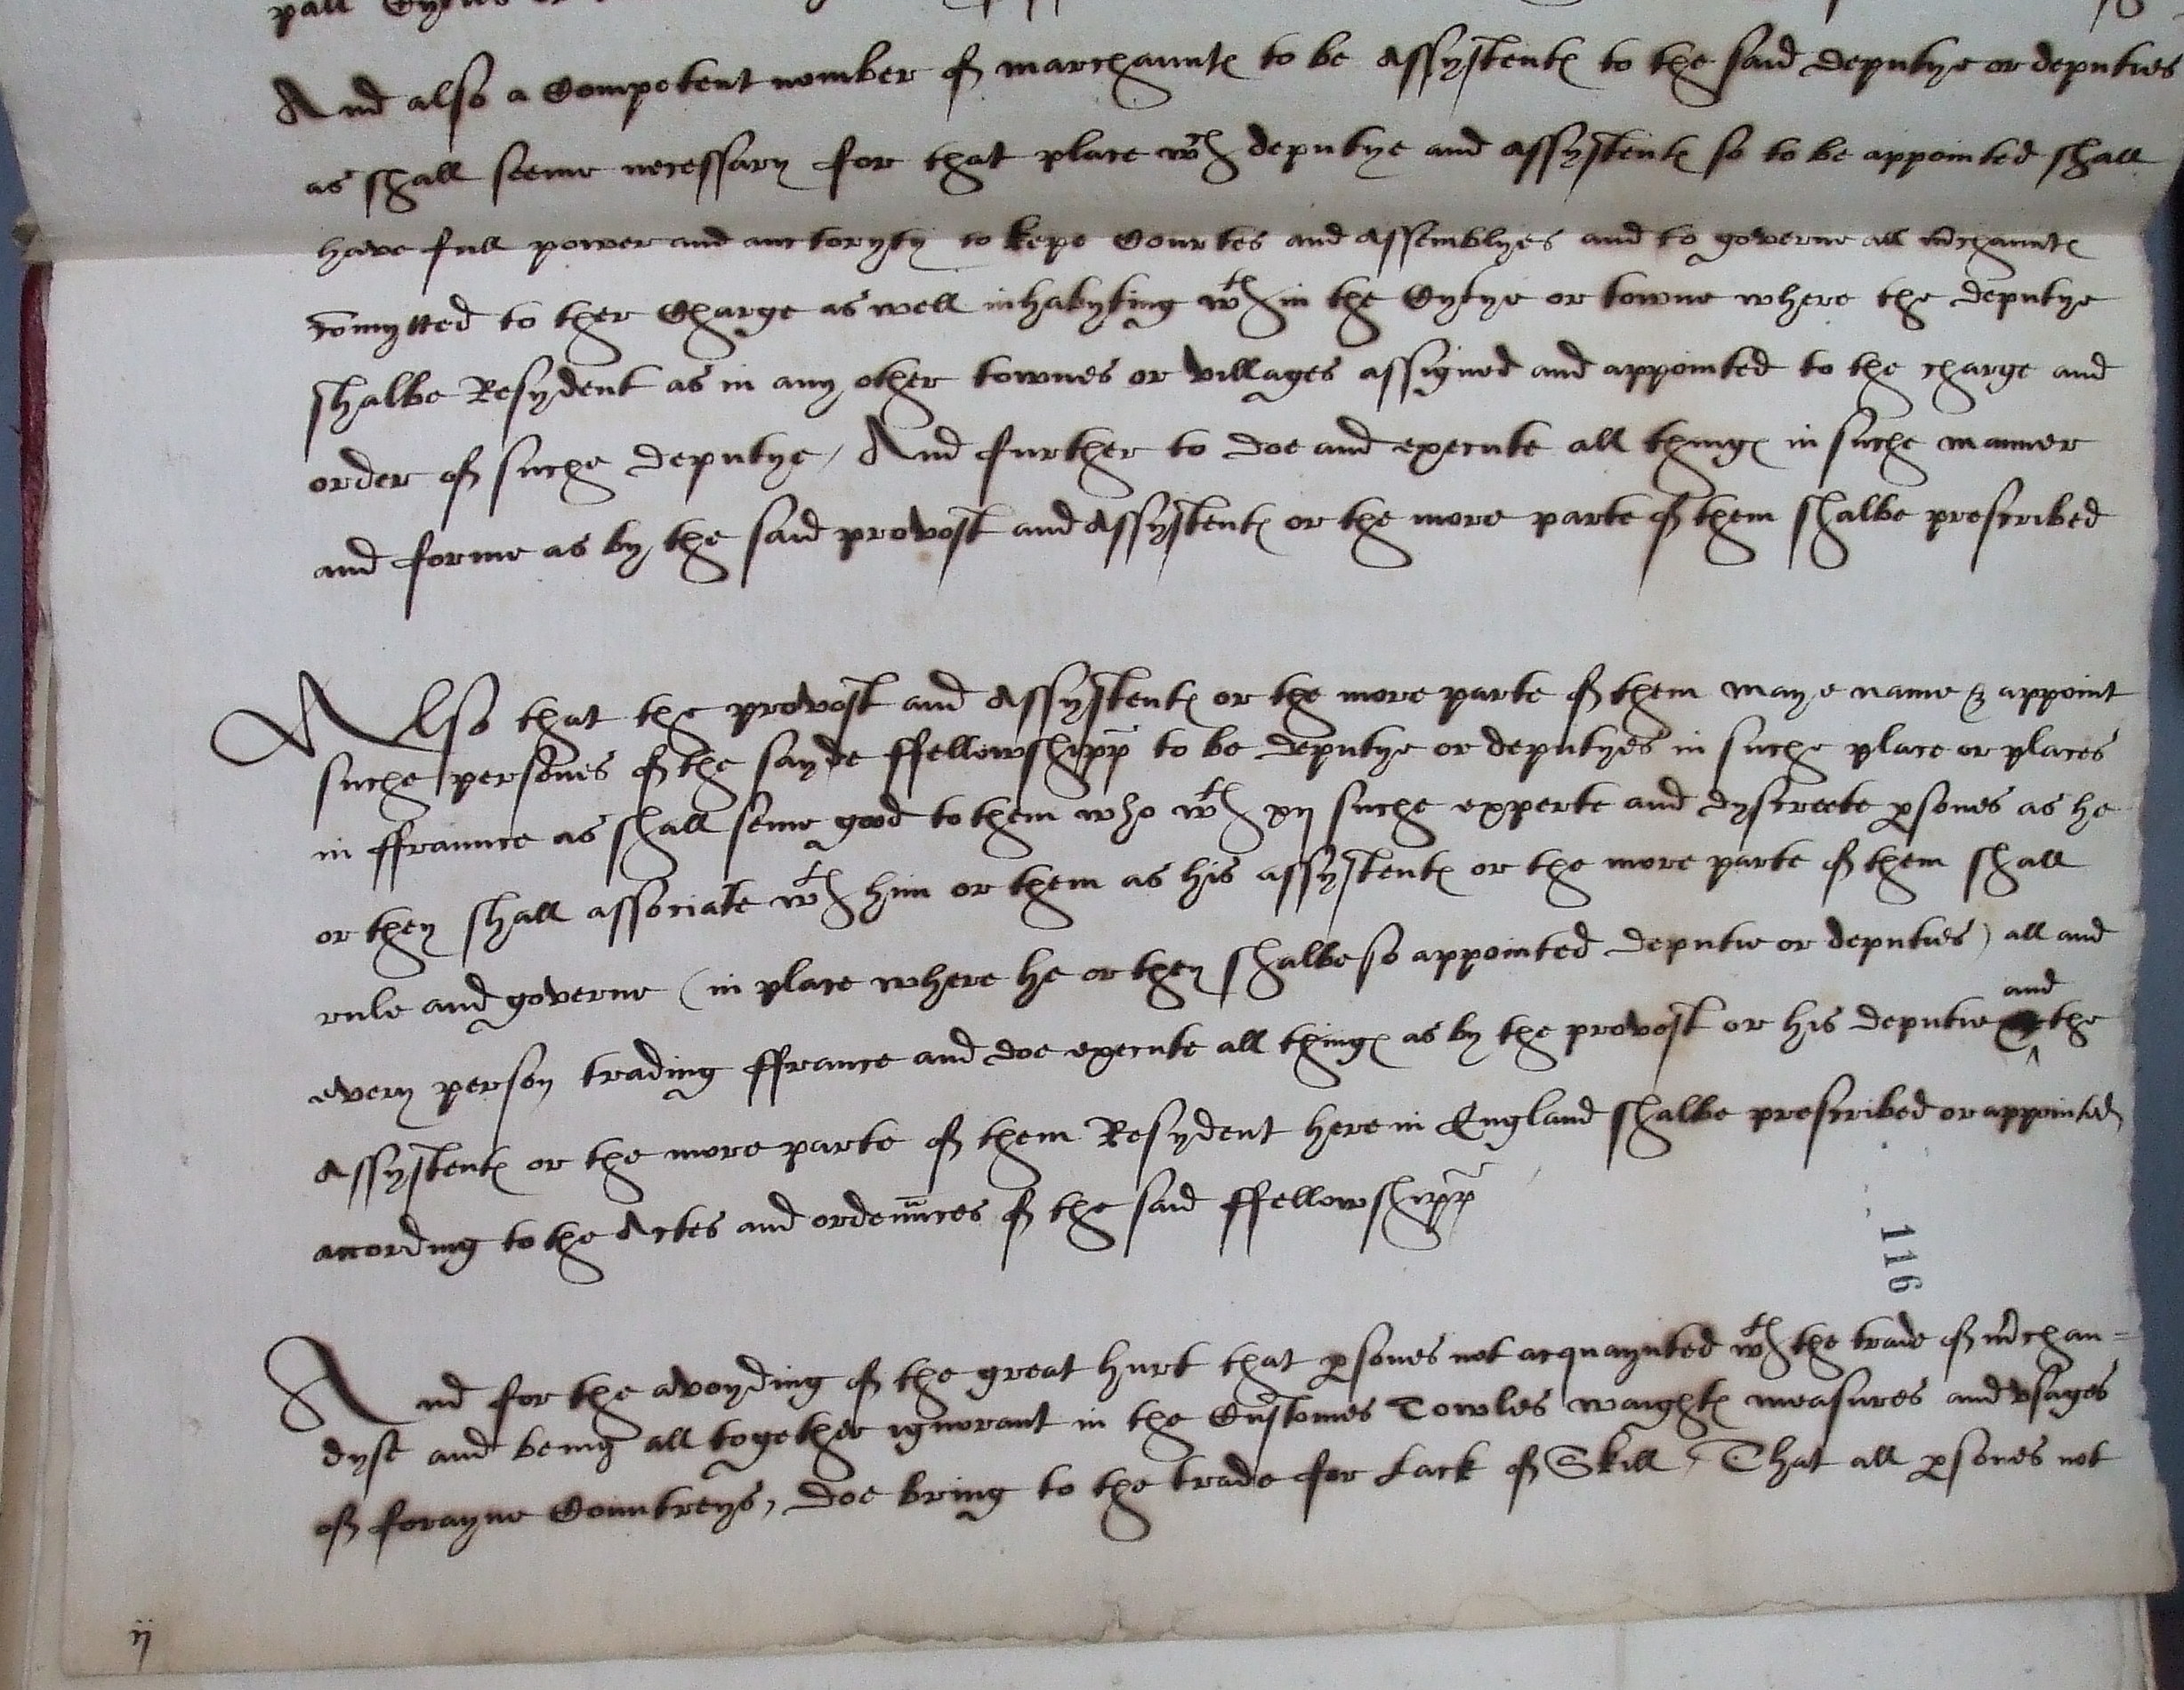 pall Cytyes
And also a Competent nomber of marchauntes to be Assystentes to the said deputye or deputies
as shall seeme necessary for that place wch deputye and Assystentes so to be appointed shall
have full power and auctoryty to kepe Courtes and Assemblyes and to governe all mchauntes
comytted to ther Charge as well inhabyting wth in the Cytye or towne where the deputye
shalbe Resydent as in any other townes or villages assigned and appointed to the charge and
order of suche deputye / And further to doe and execute all thinges in suche manner
and forme as by the said provost and Assystentes or the more parte of them shalbe prescribed
Also that the provost and Assystentes or the more parte of them maye name & appoint
suche persones of the sayde ffellowshipp to be deputye or deputyes in suche place or places
in ffraunce as shall seme good to them who wth xij suche experte and dyscreete psones as he
or they shall associate wth him or them as his assystentes or the more parte of them shall
rule and governe (in place where he or they shalbe so appointed deputie or deputies) all and
every person trading ffrance and doe execute all thinges as by the provost or his deputie and the
Assystentes or the more parte of them Resydent here in England shalbe prescribed or appointed
according to the Actes and ordenunces of the said ffellowshipp
116
And for the avoyding of the great hurt that psones not acquaynted wth the trade of mchan=
dyse and being all together ignorant in the Customes Towles waightes measures and usages
of forayne Countreys, doe bring to the trade for Lack of Skill / That all psones not
ij